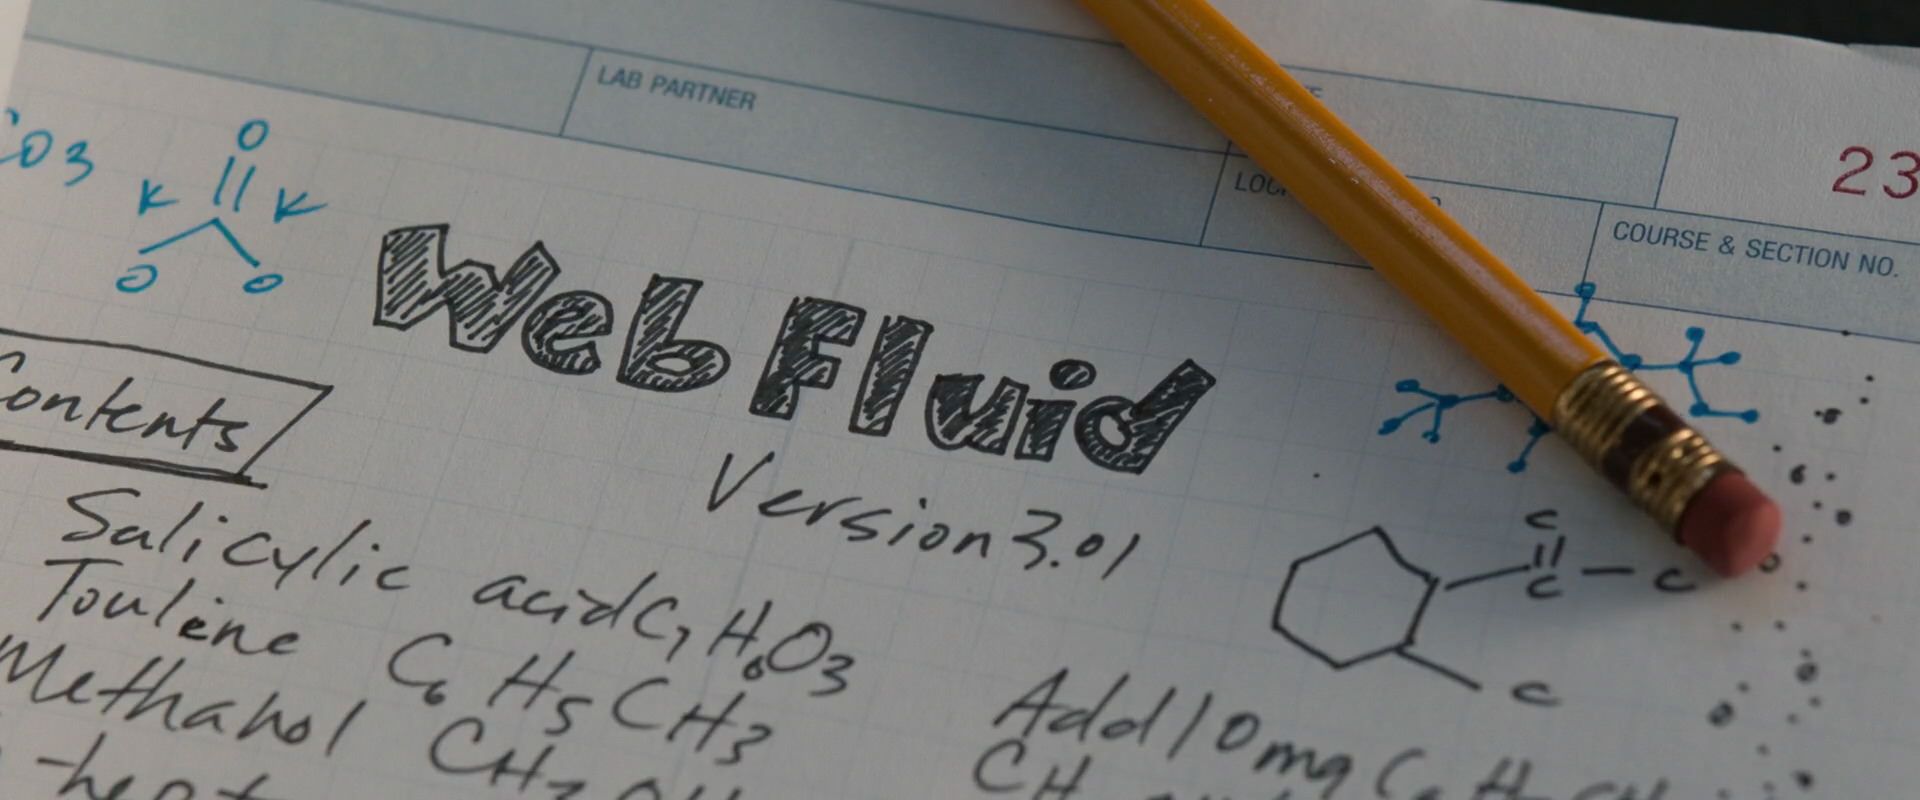 LAB PARTNER
23
COURSE & SECTION NO.
CO3
O
K K
O O
Web Fluid
Version 3.01
Contents
Salicylic acid C7H6O3
Toulene C6H5CH3
Methanol CH3OH
C
C C
C
Add 10mg
CH